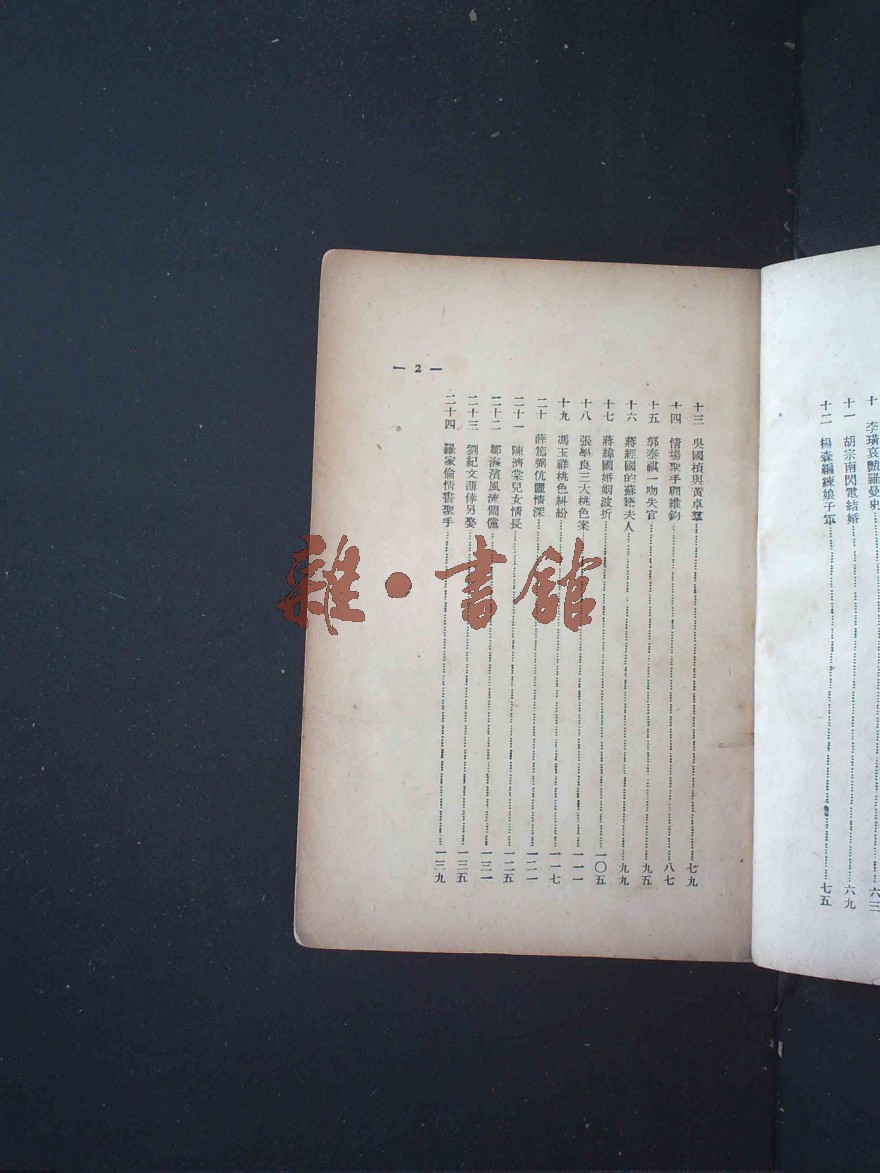 十 李璜哀豔羅曼史 六三
十一 胡宗南閃電結婚 六九
十二 楊森編練娘子軍 七五
— 2 —
十三 吳國楨與黃卓羣 七九
十四 情場聖手顧維鈞 八七
十五 郭泰祺一吻失官 九五
十六 蔣經國的蘇籍夫人 九九
十七 蔣緯國婚姻波折 一〇五
十八 張學良三大桃色案 一一一
十九 馮玉祥桃色糾紛 一一七
二十 薛篤弼伉儷情深 一二一
二十一 陳濟棠兒女情長 一二五
二十二 鄒海濱風流倜儻 一三一
二十三 劉紀文薄倖另娶 一三五
二十四 羅家倫情書聖手 一三九
雜·書館